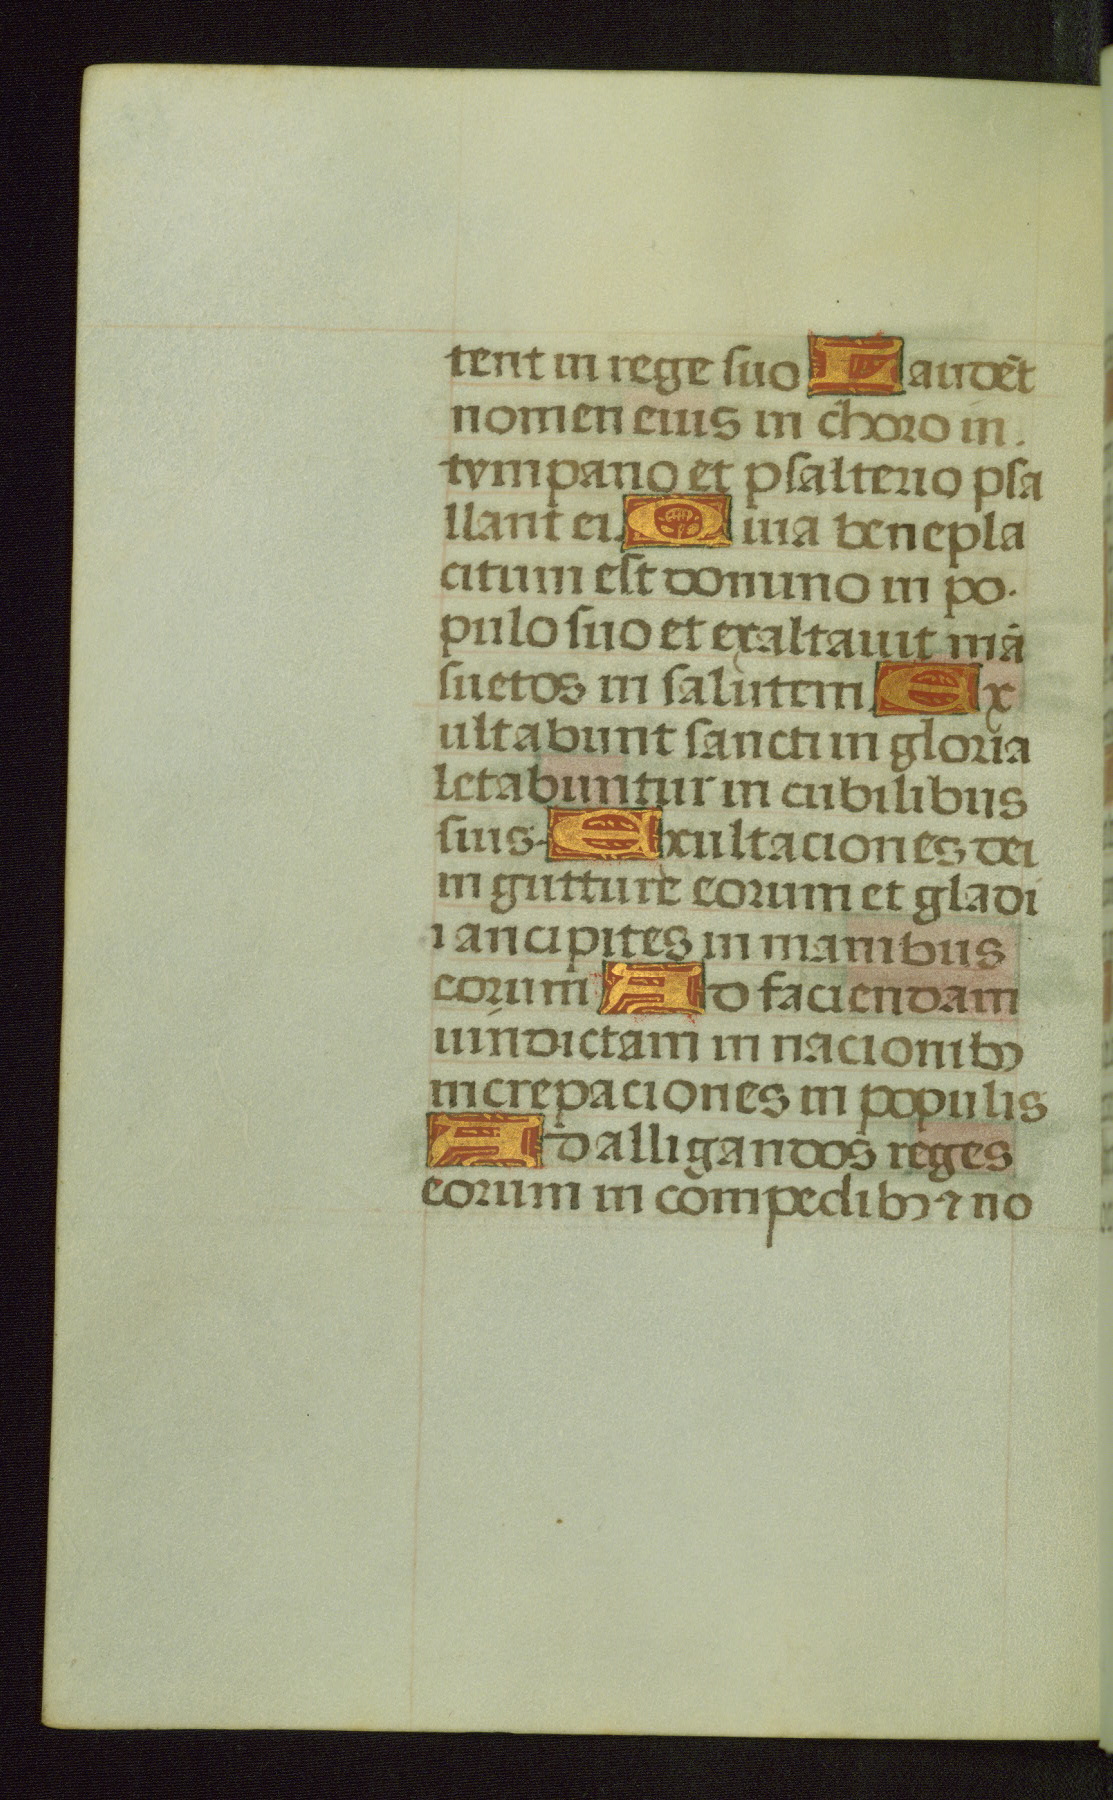 tent in rege suo Laudēt
nomen eius in choro in.
tympano et psalterio psa
llant ei. Quia benepla
citum est domino in po.
pulo suo et exaltauit mā
suetos in salutem. Ex
ultabunt sancti in gloria
letabuntur in cubilibus
suis. Exultaciones dei
in gutture eorum et gladi
i ancipites in manibus
eorum Ad faciendam
uindictam in nacionibꝫ
increpaciones in populis
Ad alligandos reges
eorum in compedibꝫ ⁊ no